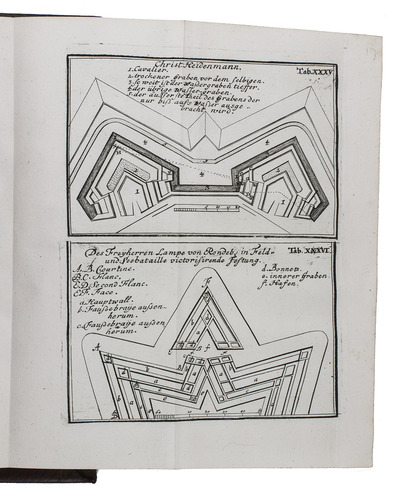 Christ. Heidenmann.
Tab. XXXV.
1. Cavalier.
2. trockener Graben vor dem selbigen.
3. so weit ist der Wassergraben tieffer.
4. der übrige Wasser-Graben.
5. der äusserste Theil des Grabens der
nur biss aufs Wasser ausge-
bracht wird.
Des Freyherren Lampe von Rondeb: in Feld-
Tab. XXXVI.
und Vorbataille victorisirende Festung.
A.B. Courtine.
B.C. Flanc.
C.D. Second Flanc.
E.F. Face.
a. Hauptwall.
b. Faussebraye aussen
herum.
c. Faussebraye aussen
herum.
d. Bonnets.
e. innerer Graben
f. Hafen.